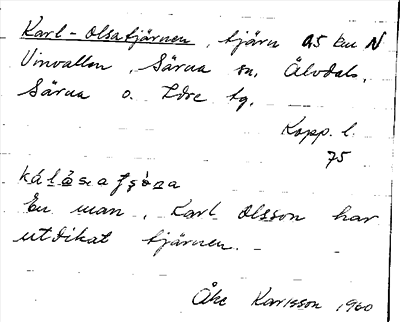 Karl-Olsatjärnen, tjärn 0,5 km N
Vinvallen, Särna sn, Älvdals,
Särna o. Idre tg.
Kopp. l.
75
En man, Karl Olsson har
utdikat tjärnen.
Åke Karlsson 1960